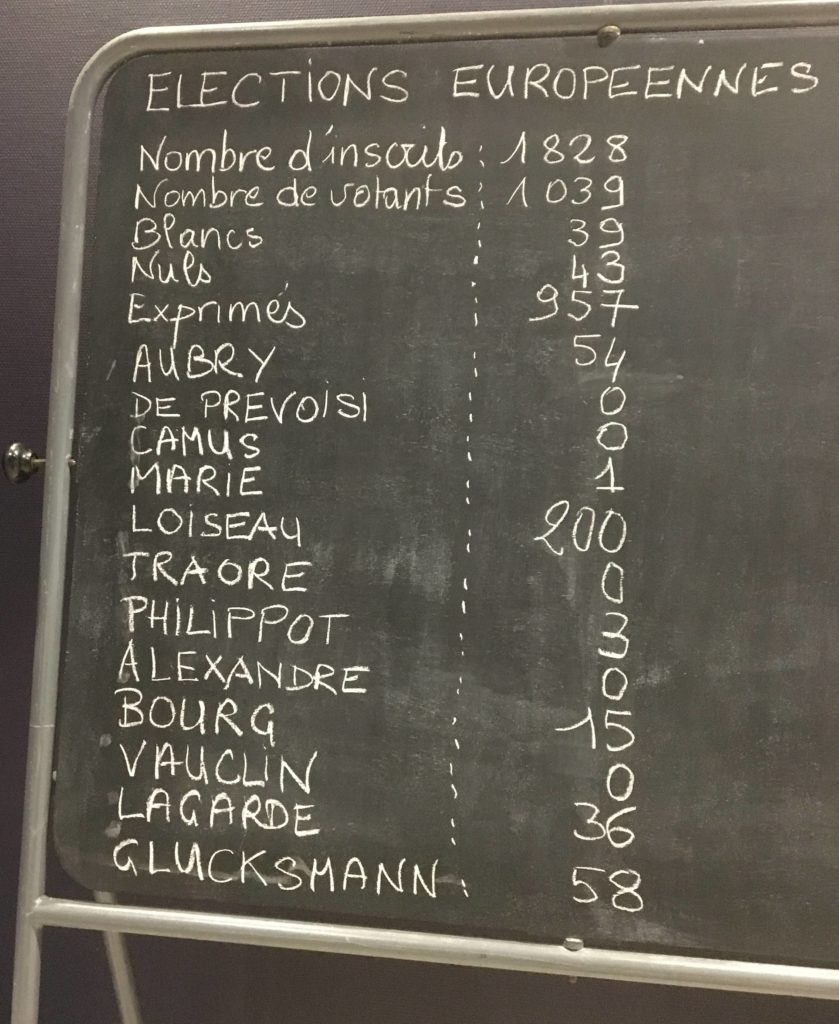 ELECTIONS EUROPEENNES
Nombre d'inscrits : 1828
Nombre de votants : 1039
Blancs : 39
Nuls : 43
Exprimés : 957
AUBRY : 54
DE PREVOISI : 0
CAMUS : 0
MARIE : 1
LOISEAU : 200
TRAORE : 0
PHILIPPOT : 3
ALEXANDRE : 0
BOURG : 15
VAUCLIN : 0
LAGARDE : 36
GLUCKSMANN : 58